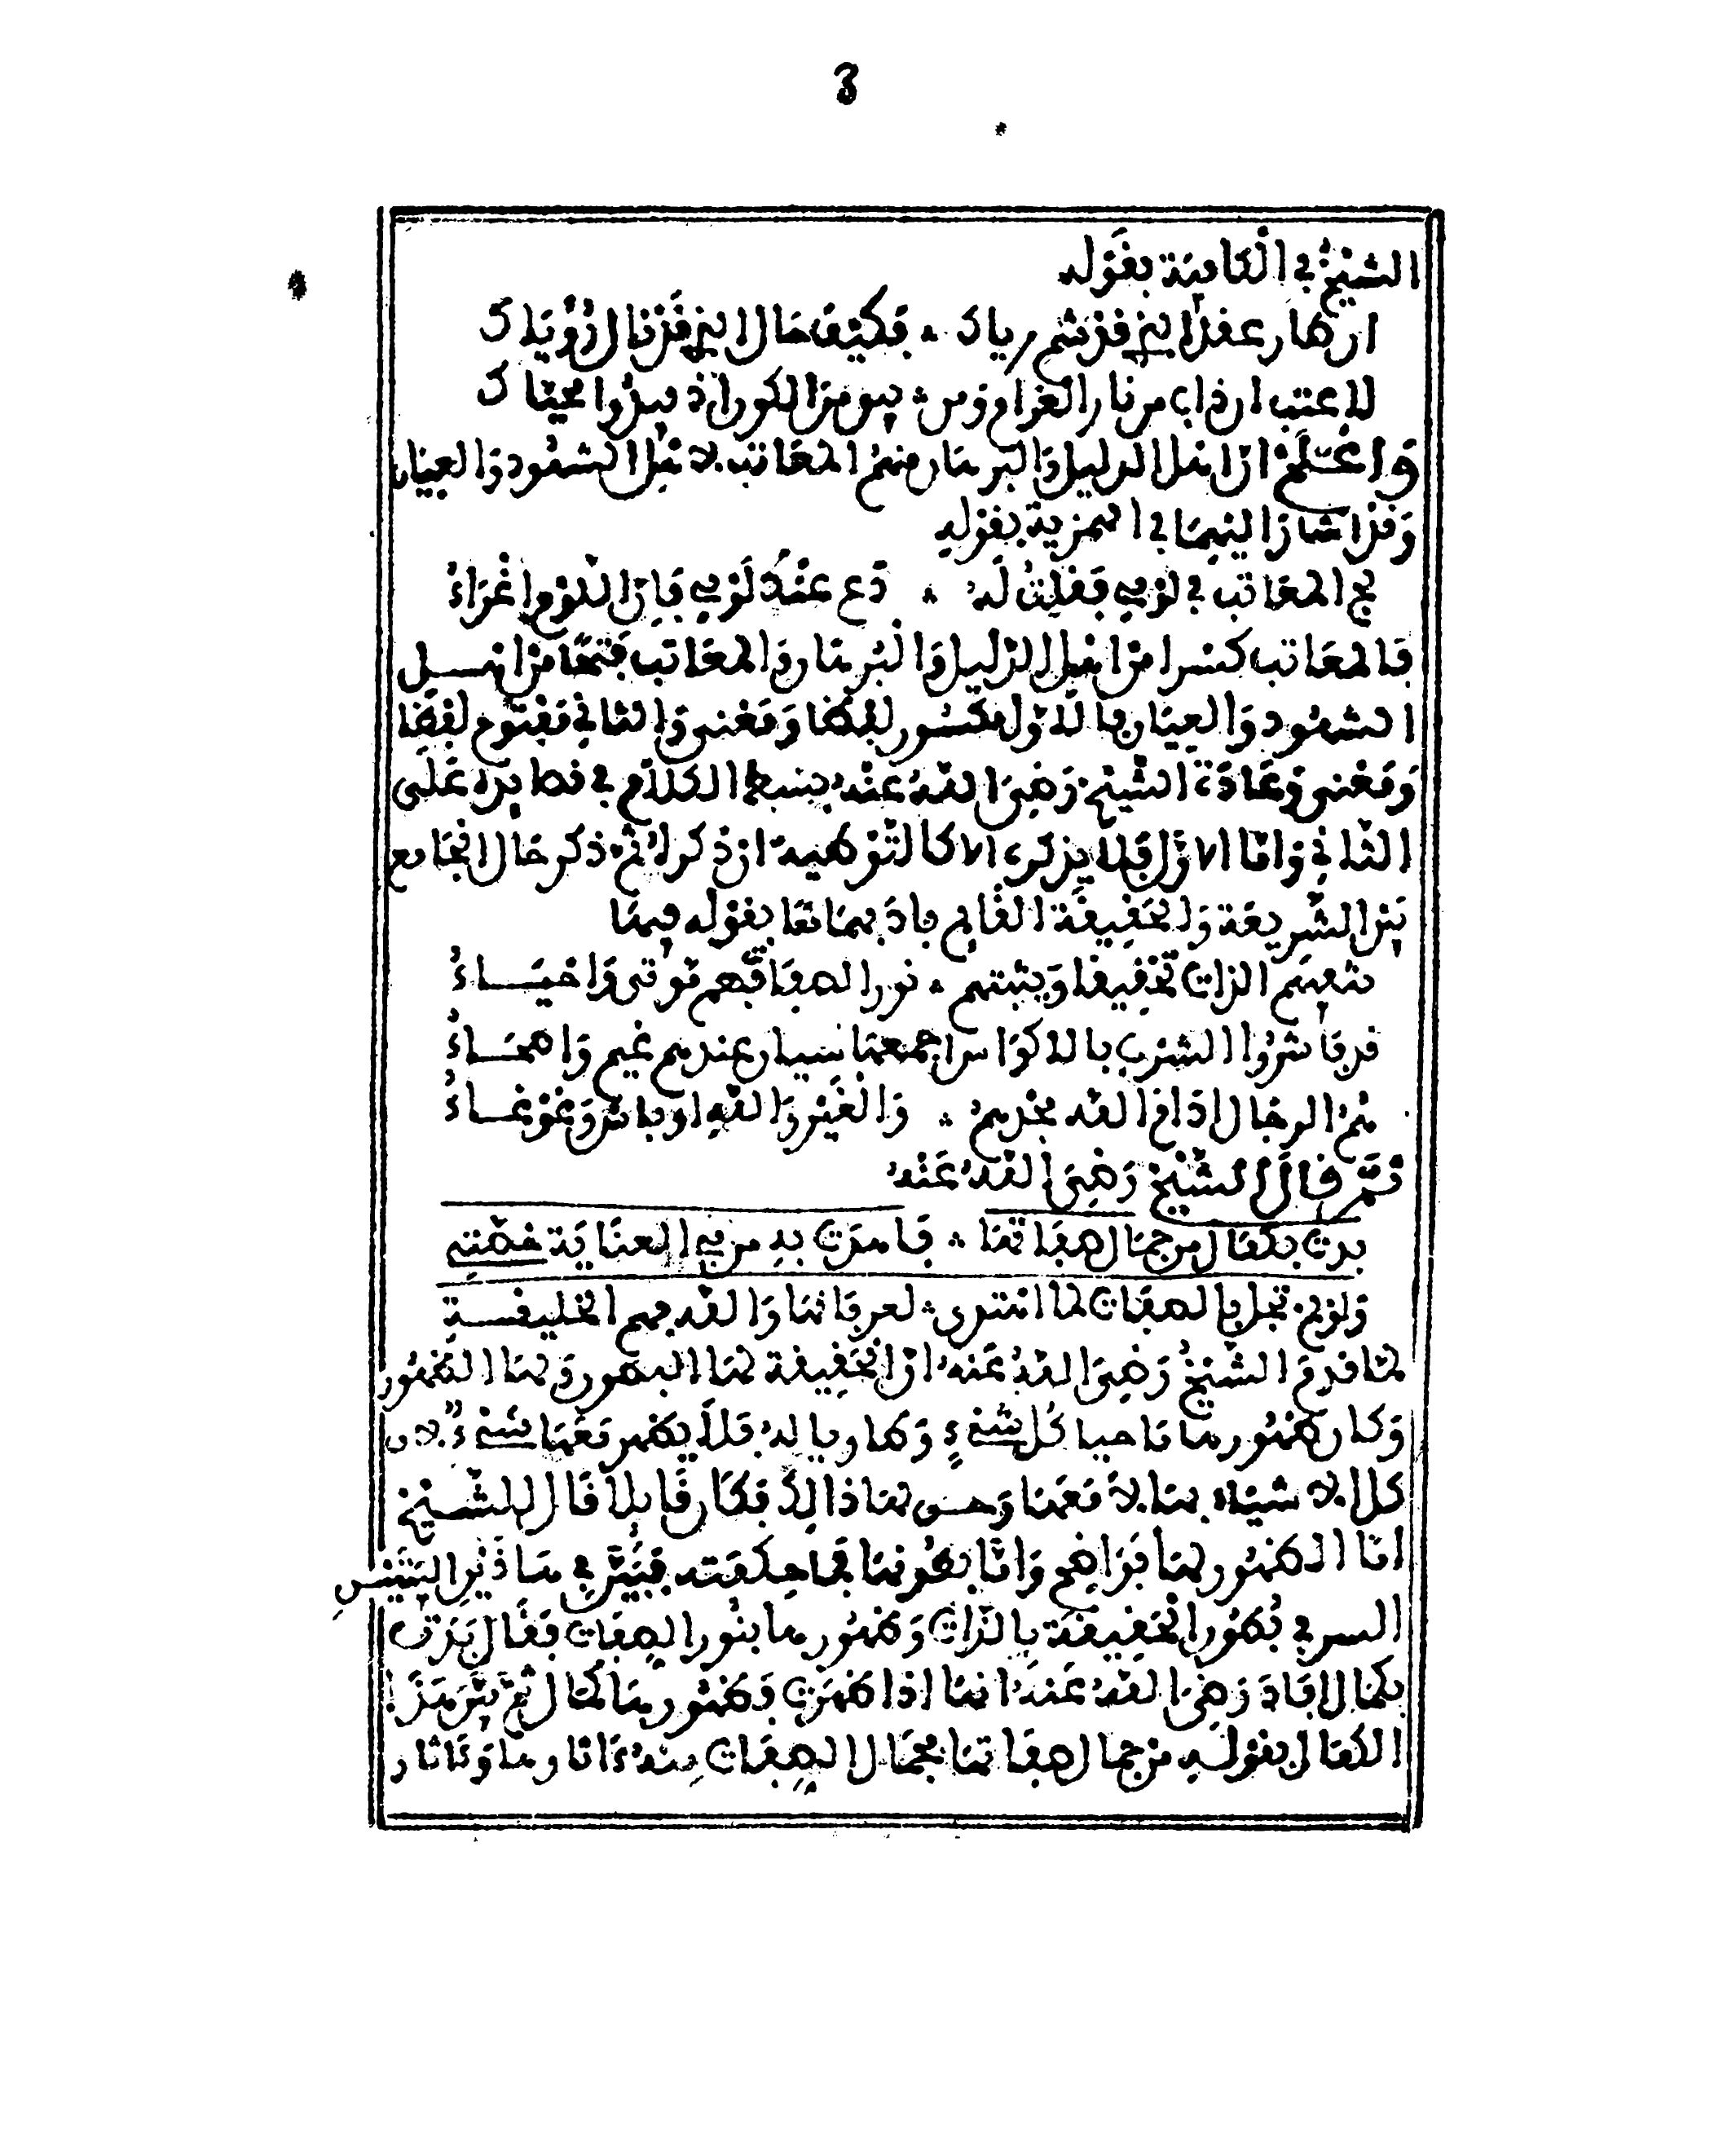 3
الشيخ في الكافية بقوله
ان طار عقل الذي قد شم رياك ؞ فكيف حال الذي قد نال رؤياك
لا عتب ان ذاب من نار الغرام ومن ؞ يبو من الكون اذ محياك
واعلم ان اهل الدليل والبرهان منهم المعاتب لاهل الشهود والعيان
وقد اشار اليهما في الهمزية بقوله
لج المعاتب في لومي فقلت له ؞ دع عنك لومي فان اللوم اغراء
فالمعاتب كسرا من اهل الدليل والبرهان والمعاتب فتحا من اهل
الشهود والعيان فالاول مكسور لفظا ومعنى والثاني مفتوح لفظا
ومعنى وعادة الشيخ رضي الله عنه يبسط الكلام في قصايده على
الثاني واما الاول فلا يذكره الا كالتوطية ان ذكر ثم ذكر حال الجامع
بين الشريعة والحقيقة القايم باد بهما معا بقوله فيها
تفنيهم الذات تحقيقا ويثبتهم ؞ نور الصفا فهم موتى واحياء
قد باشروا الشرب بالاكواس اجمعها سيان عندهم غيم واصحاء
هم الرجال اذام الله مجدهم ؞ والغير والله اوباش وغوغاء
ثم قال الشيخ رضي الله عنه
بدت بكمال من جمال صفاتها ؞ فامرت به من في العناية خصت
ولو لم تجل بالصفات لما اهتدى ؞ لعرفانها والله فهم الخليقة
لما قدم الشيخ رضي الله عنه ان الحقيقة لها البطون ولها الظهور
وكان ظهورها ماحيا كل شيء وطاويا له فلا يظهر معها شيء لان
كل الاشياء بها لا معها وحسن هذا ذالك فكان قايلا قال للشيخ
اما الظهور لها فواضح واما بطونها فما حكمته فبين في هاذين البيتين
السر في بطون الحقيقة بالذات وظهورها بنور الصفات فقال بدت
بكمال افاد رضي الله عنه انها اذا ظهرت فظهورها كمال ثم بين هذا
الكمال بقوله من جمال صفاتها فجمال الصفات منه ءاثارها وءاثار